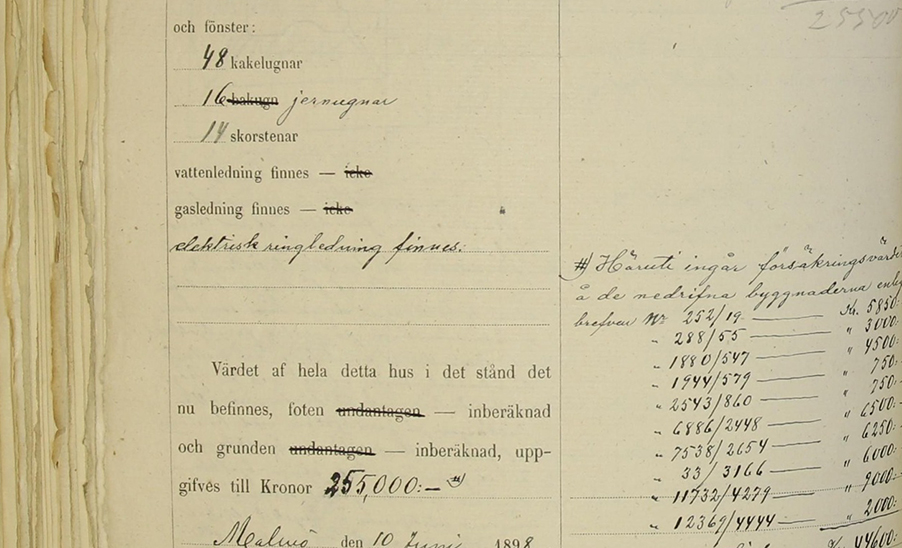 25500
och fönster:
48 kakelugnar
16 bakugn jernugnar
14 skorstenar
vattenledning finnes — icke
gasledning finnes — icke
elektrisk ringledning finnes.
Värdet af hela detta hus i det stånd det
nu befinnes, foten undantagen — inberäknad
och grunden undantagen — inberäknad, upp-
gifves till Kronor 255,000:— #)
Malmö den 10 Juni 1898
#) Häruti ingår försäkringsvärde
å de nedrifna byggnaderna enl
brefven No 252/19 — Kr. 5850:
" 288/55 — " 3000:
" 1880/547 — " 4500:
" 1944/579 — " 750:
" 2543/860 — " 750:
" 6886/2448 — " 6500:
" 7538/2654 — " 6250:
" 33/3166 — " 6000:
" 11732/4279 — " 9000:
" 12369/4444 — " 2000:
44600: